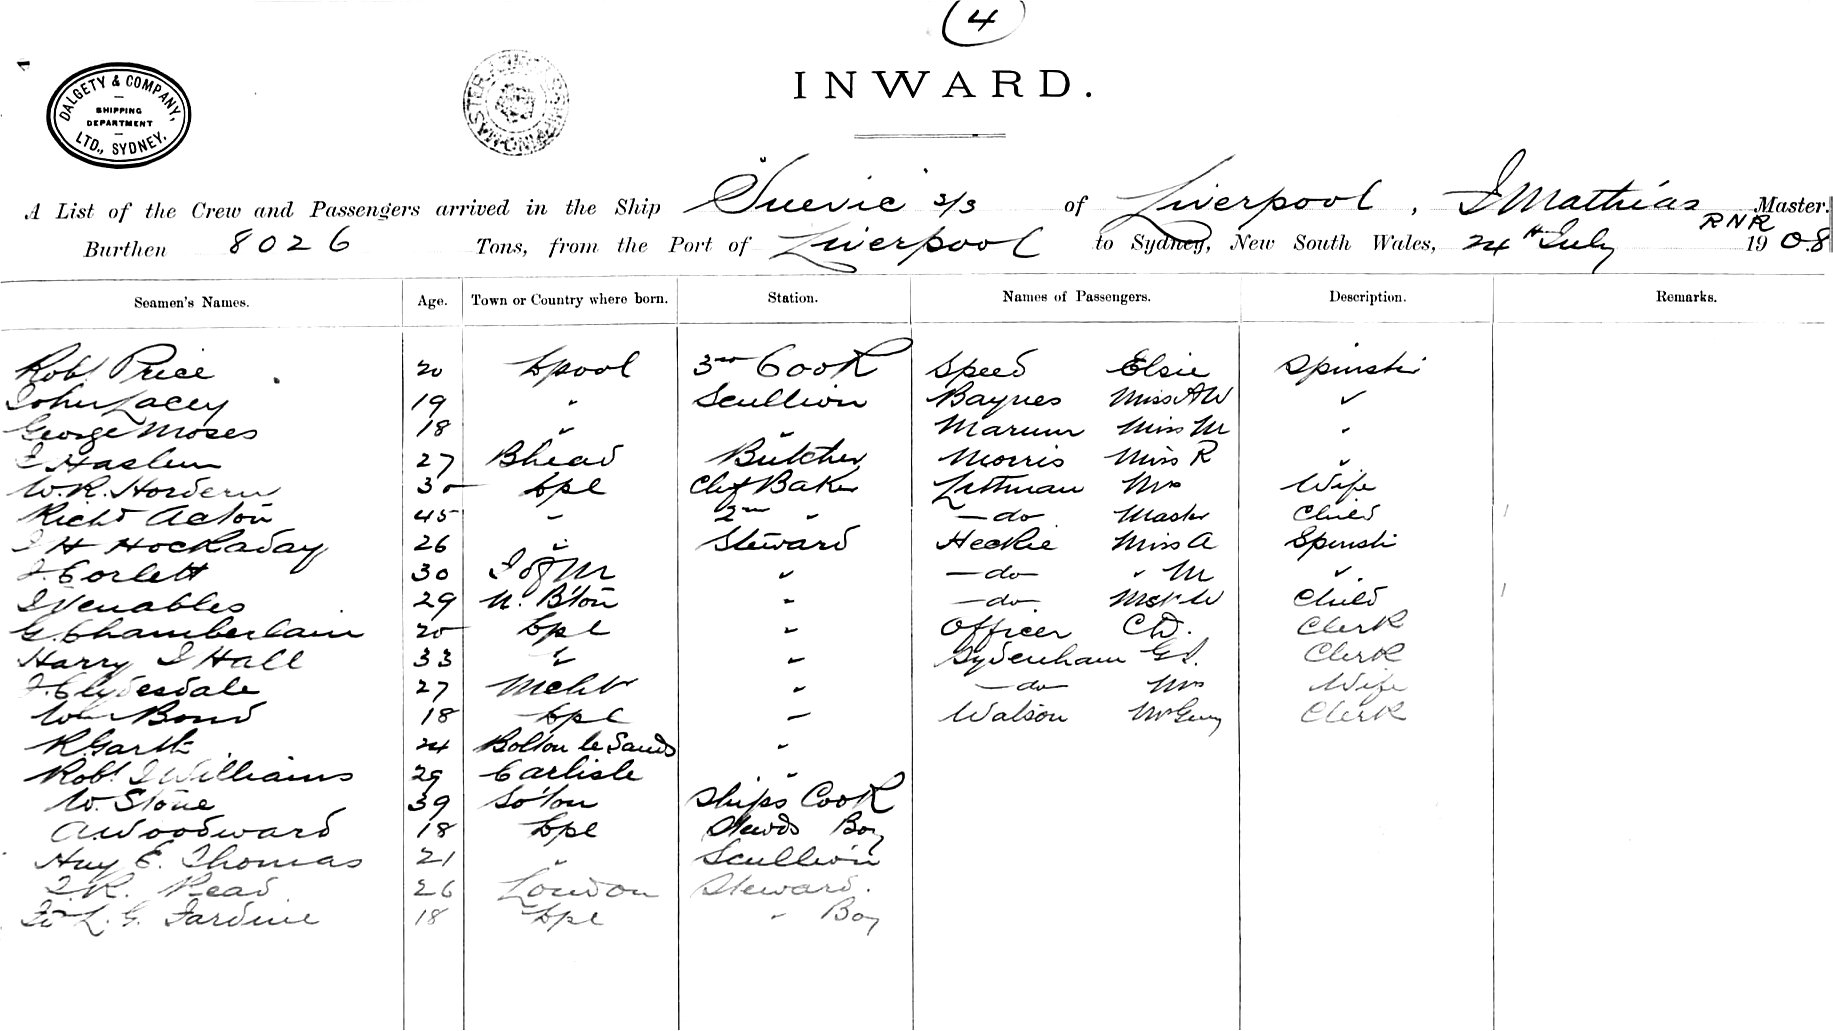 4
INWARD.
DALGETY & COMPANY,
SHIPPING
DEPARTMENT
LTD., SYDNEY.
A List of the Crew and Passengers arrived in the Ship "Suevic" S/S of Liverpool, J Mathias Master.
RNR
Burthen 8026 Tons, from the Port of Liverpool to Sydney, New South Wales, 24th July 1908
Seamen's Names. Age. Town or Country where born. Station. Names of Passengers. Description. Remarks.
Robt Price 20 Lpool 3rd Cook Speed Elsie Spinstr
John Lacey 19 " Scullion Baynes Miss AW "
George Moses 18 " " Marum Miss M "
Haslem 27 Bhead Butcher Morris Miss R "
W.R. Hordern 30 Lpl Chf Baker Littman Mrs Wife
Richd Acton 45 " 2nd " -do- Master Child
J H Hockaday 26 " Steward Heckie Miss A Spinstr
J. Corlett 30 I of M " -do- " M "
J Venables 29 N. B'ton " -do- Mstr W Child
G. Chamberlain 20 Lpl " Officer CD. Clerk
Harry J Hall 33 " " Sydenham G Clerk
J. Clydesdale 27 " -do- Mrs Wife
Wm Bond 18 Lpl " Watson Clerk
R Garth 24 Bolton le Sands "
Robt J Williams 29 Carlisle "
W. Stone 39 So'ton Ships Cook
A Woodward 18 Lpl Stewds Boy
Hy E. Thomas 21 " Scullion
J.R. Read 26 London Steward.
L. G. Jardine 18 Lpl " Boy